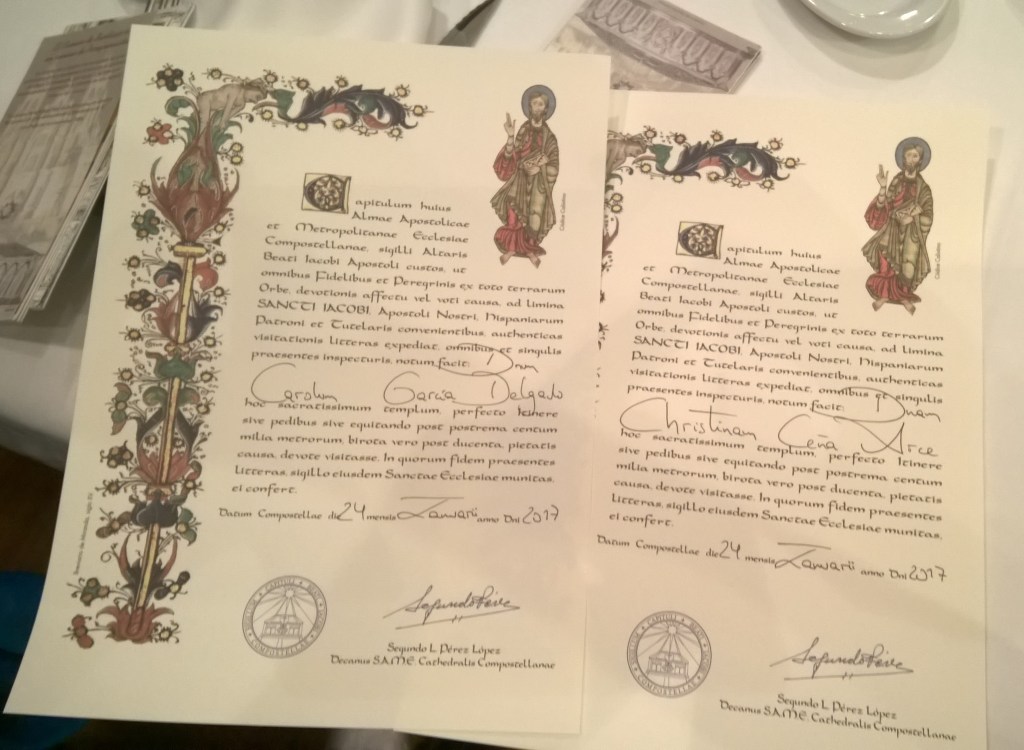 Capitulum huius
Almae Apostolicae
et Metropolitanae Ecclesiae
Compostellanae, sigilli Altaris
Beati Iacobi Apostoli custos, ut
omnibus Fidelibus et Peregrinis ex toto terrarum
Orbe, devotionis affectu vel voti causa, ad limina
SANCTI IACOBI, Apostoli Nostri, Hispaniarum
Patroni et Tutelaris convenientibus, authenticas
visitationis litteras expediat, omnibus et singulis
praesentes inspecturis, notum facit: Dnum
Carolum García Delgado
hoc sacratissimum templum, perfecto Itinere
sive pedibus sive equitando post postrema centum
milia metrorum, birota vero post ducenta, pietatis
causa, devote visitasse. In quorum fidem praesentes
litteras, sigillo eiusdem Sanctae Ecclesiae munitas,
ei confert.
Datum Compostellae die 24 mensis Ianuarii anno Dni 2017
Segundo L. Pérez López
Decanus S.A.M.E. Cathedralis Compostellanae
Capitulum huius
Almae Apostolicae
et Metropolitanae Ecclesiae
Compostellanae, sigilli Altaris
Beati Iacobi Apostoli custos, ut
omnibus Fidelibus et Peregrinis ex toto terrarum
Orbe, devotionis affectu vel voti causa, ad limina
SANCTI IACOBI, Apostoli Nostri, Hispaniarum
Patroni et Tutelaris convenientibus, authenticas
visitationis litteras expediat, omnibus et singulis
praesentes inspecturis, notum facit: Dnam
Christinam Ceña Arce
hoc sacratissimum templum, perfecto Itinere
sive pedibus sive equitando post postrema centum
milia metrorum, birota vero post ducenta, pietatis
causa, devote visitasse. In quorum fidem praesentes
litteras, sigillo eiusdem Sanctae Ecclesiae munitas,
ei confert.
Datum Compostellae die 24 mensis Ianuarii anno Dni 2017
Segundo L. Pérez López
Decanus S.A.M.E. Cathedralis Compostellanae